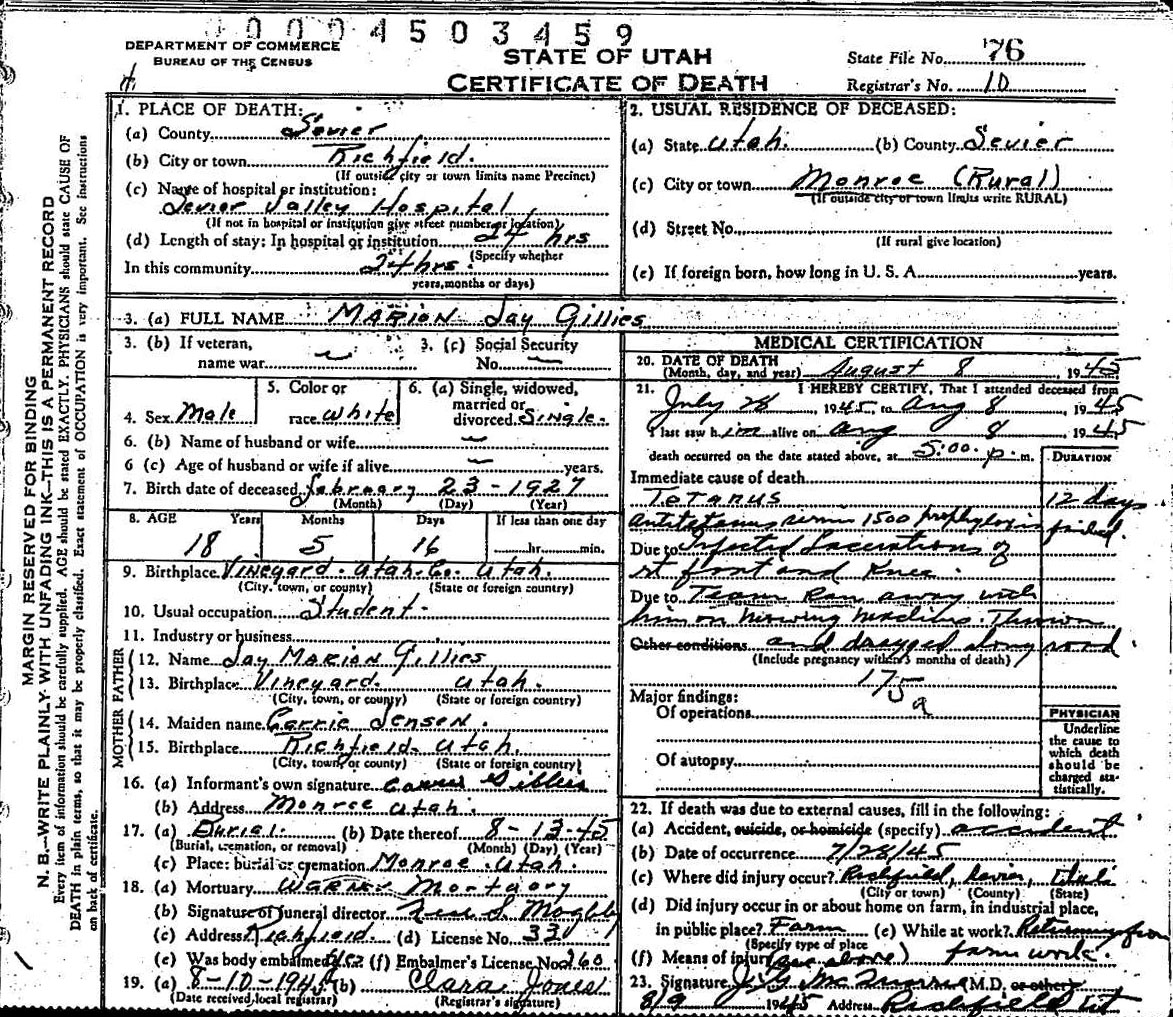 0004503459
DEPARTMENT OF COMMERCE
BUREAU OF THE CENSUS
STATE OF UTAH
CERTIFICATE OF DEATH
State File No. 76
Registrar's No. 10
MARGIN RESERVED FOR BINDING
N. B.—WRITE PLAINLY WITH UNFADING INK—THIS IS A PERMANENT RECORD
Every item of information should be carefully supplied. AGE should be stated EXACTLY. PHYSICIANS should state CAUSE OF
DEATH in plain terms, so that it may be properly classified. Exact statement of OCCUPATION is very important. See instructions
on back of certificate.
1. PLACE OF DEATH:
(a) County Sevier
(b) City or town Richfield.
(If outside city or town limits name Precinct)
(c) Name of hospital or institution:
Sevier Valley Hospital
(If not in hospital or institution give street number or location)
(d) Length of stay: In hospital or institution 24 hrs
(Specify whether
In this community 24 hrs.
years, months or days)
2. USUAL RESIDENCE OF DECEASED:
(a) State Utah. (b) County Sevier
(c) City or town Monroe (Rural)
(If outside city or town limits write RURAL)
(d) Street No.
(If rural give location)
(e) If foreign born, how long in U. S. A. years.
3. (a) FULL NAME MARION Jay Gillies
3. (b) If veteran, name war
3. (c) Social Security No.
4. Sex Male
5. Color or race White
6. (a) Single, widowed, married or divorced Single.
6. (b) Name of husband or wife
6 (c) Age of husband or wife if alive years.
7. Birth date of deceased February 23 - 1927
(Month) (Day) (Year)
8. AGE Years Months Days If less than one day
18 5 16 hr. min.
9. Birthplace Vineyard. Utah. Co. Utah.
(City, town, or county) (State or foreign country)
10. Usual occupation Student.
11. Industry or business
FATHER
12. Name Jay MARION Gillies
13. Birthplace Vineyard. Utah.
(City, town, or county) (State or foreign country)
MOTHER
14. Maiden name Carrie Jensen.
15. Birthplace Richfield. Utah.
(City, town or county) (State or foreign country)
16. (a) Informant's own signature Carrie Gillies
(b) Address Monroe Utah.
17. (a) Burial. (b) Date thereof 8-13-45
(Burial, cremation, or removal) (Month) (Day) (Year)
(c) Place: burial or cremation Monroe. Utah.
18. (a) Mortuary Mortuary
(b) Signature of funeral director
(c) Address Richfield. (d) License No. 330
(e) Was body embalmed Yes (f) Embalmer's License No. 260
19. (a) 8-10-194 (b) Clara Jones
(Date received, local registrar) (Registrar's signature)
MEDICAL CERTIFICATION
20. DATE OF DEATH
(Month, day, and year) August 8 1945
21. I HEREBY CERTIFY, That I attended deceased from
July 28, 1945, to Aug 8, 1945
I last saw him alive on Aug 8 1945
death occurred on the date stated above, at 5:00 p. m.
DURATION
Immediate cause of death
Tetanus 12 days
antitetanus serum 1500 prophylaxis failed.
Due to Infected Lacerations of
rt foot and Knee.
Due to Team Ran away with
him on Mowing Machine. Thrown
Other conditions and dragged along road.
(Include pregnancy within 3 months of death)
175
a
Major findings:
Of operations
Of autopsy
PHYSICIAN
Underline
the cause to
which death
should be
charged sta-
tistically.
22. If death was due to external causes, fill in the following:
(a) Accident, suicide, or homicide (specify) accident
(b) Date of occurrence 7/28/45
(c) Where did injury occur? Richfield, Sevier, Utah
(City or town) (County) (State)
(d) Did injury occur in or about home on farm, in industrial place,
in public place? Farm (e) While at work? Returning from
(Specify type of place
(f) Means of injury (see above) farm work.
23. Signature (M.D. or other)
8/9 1945 Address Richfield Ut